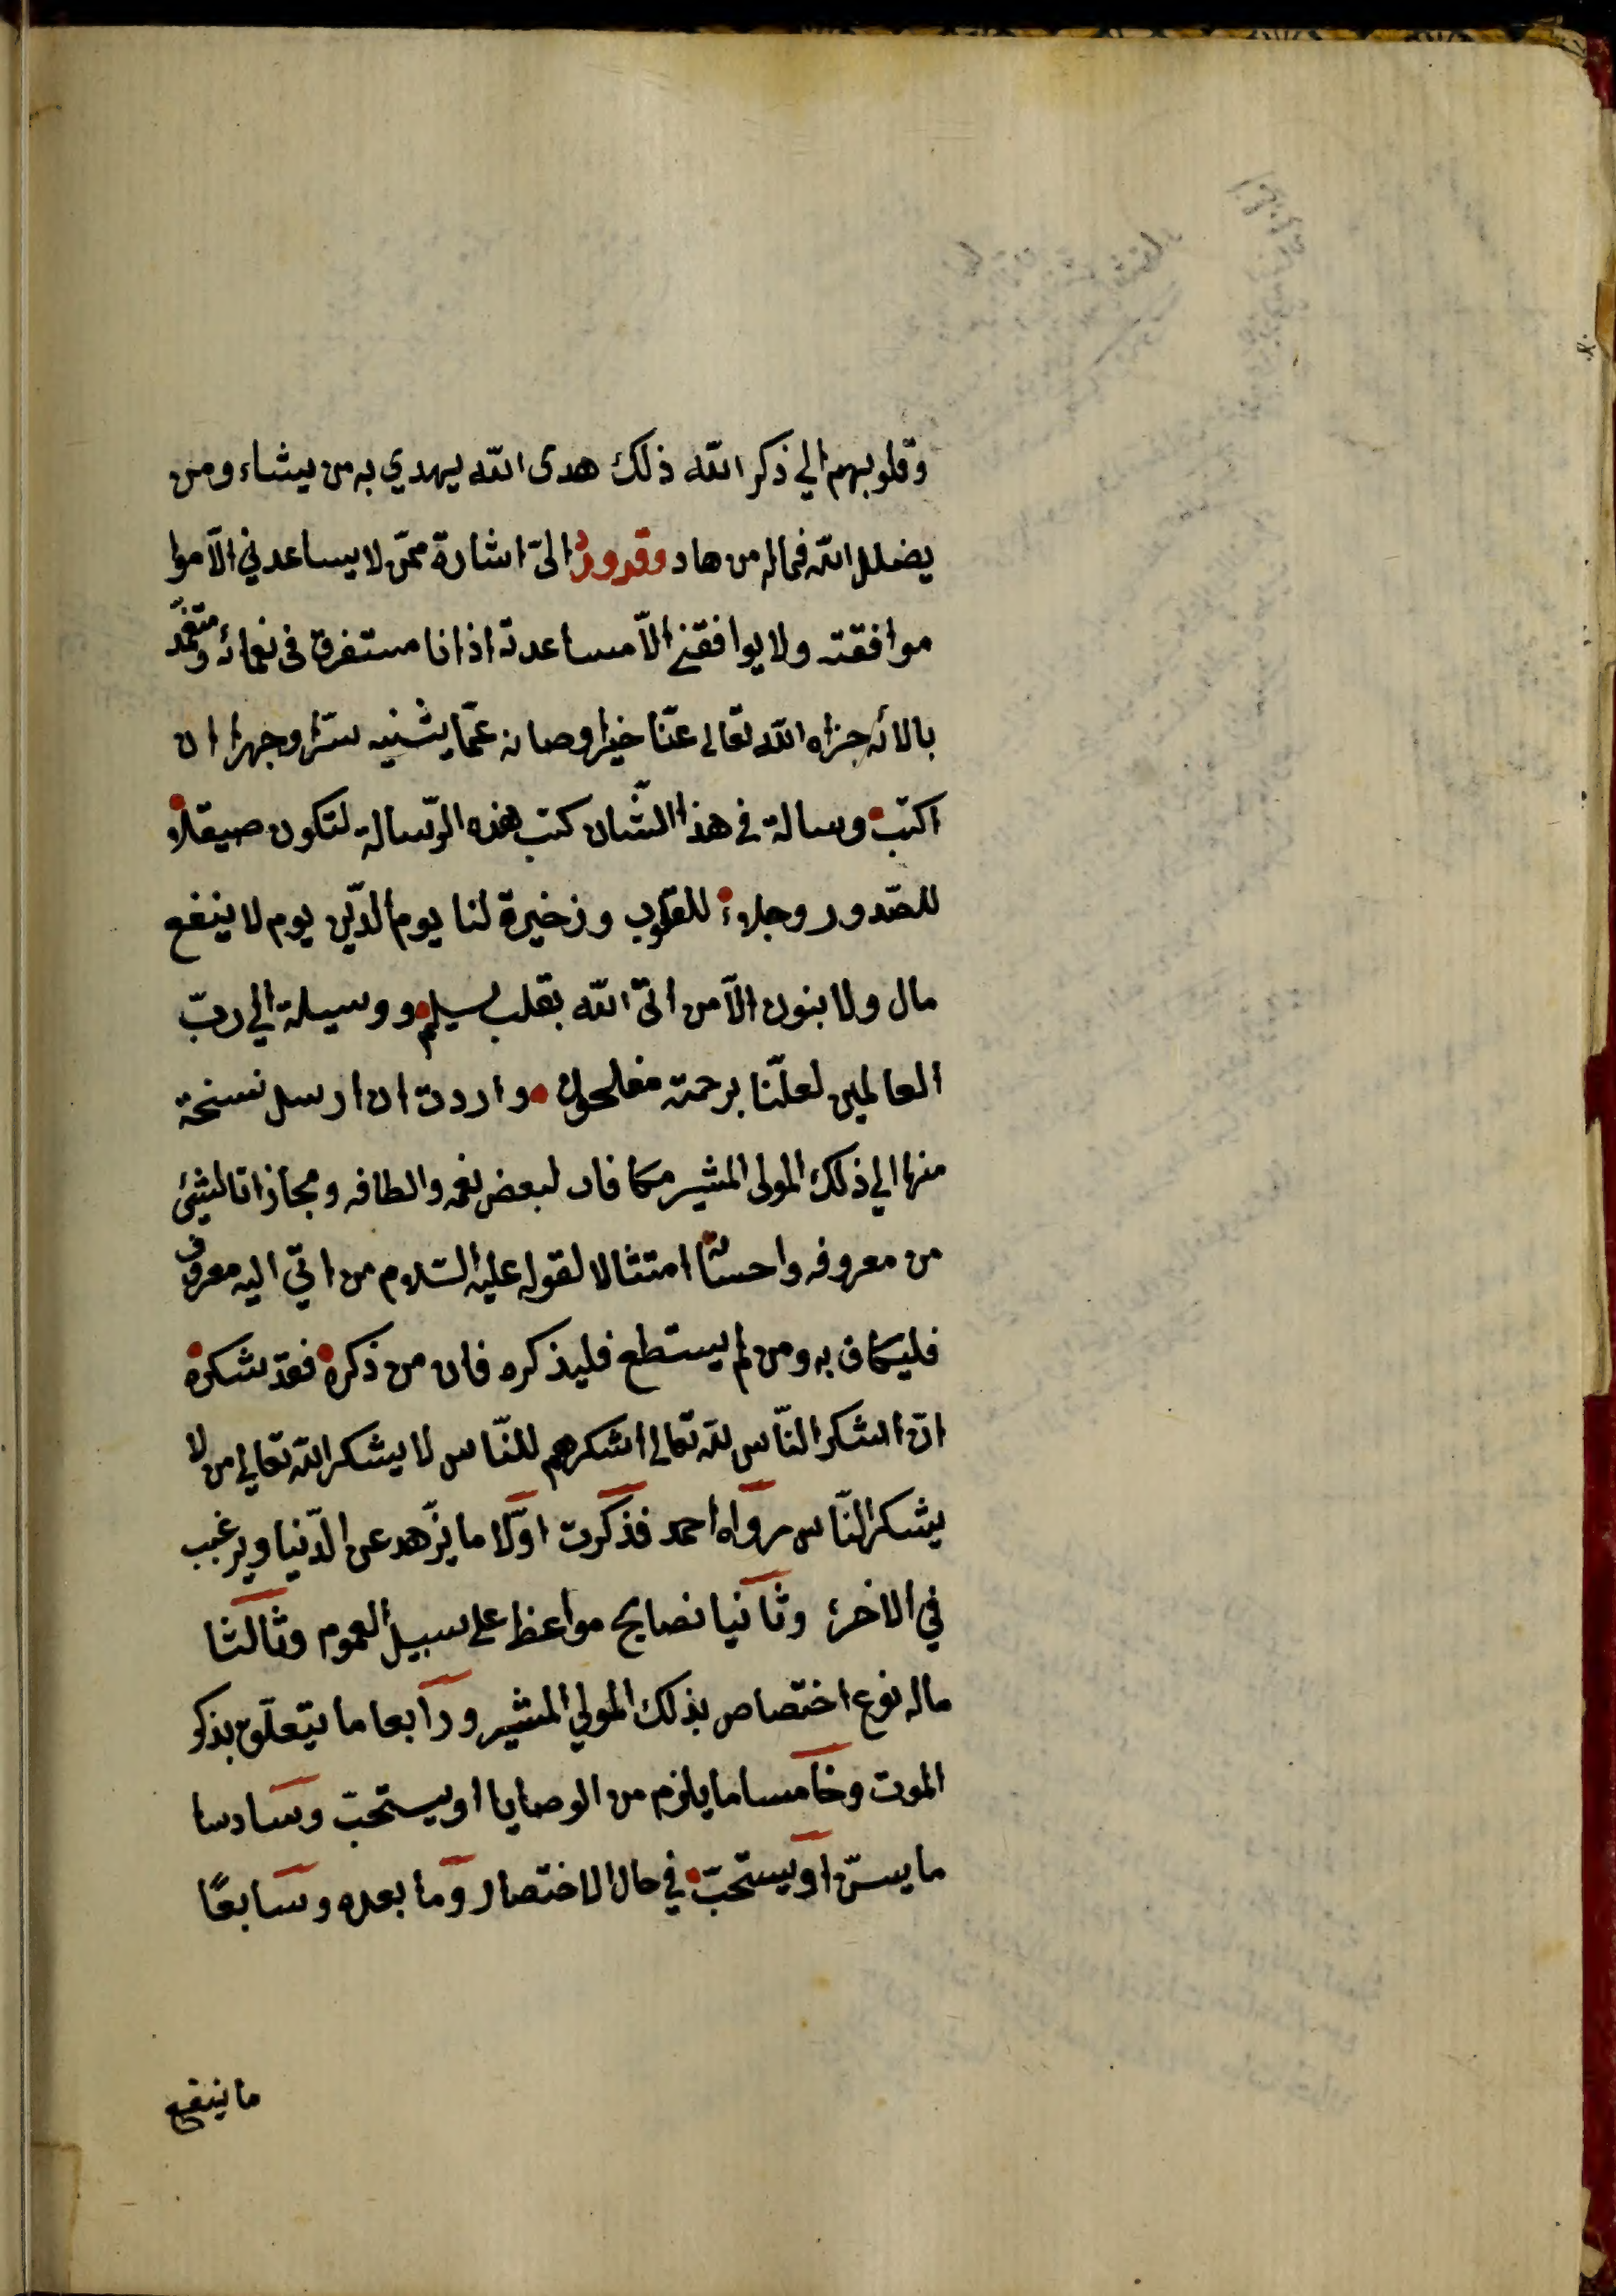 وقلوبهم الي ذكر الله ذلك هدى الله يهدي به من يشاء ومن
يضلل الله فماله من هاد وقد ورد اليّ اشارة ممّن لا يساعدني الّا موا
موافقته ولا يوافقني الّا مساعدته اذ انا مستغرق فى نعمائه ومتغمّد
بالائه جزاه الله تعالى عنّا خيرا وصانه عمّا يشنيه سرّا وجهرا ان
اكتب رسالة في هذا الشّان كتب هذه الرّسالة لتكون صيقلا
للصّدور وجلاء للقلوب وزخيرة لنا يوم الدّين يوم لا ينفع
مال ولا بنون الّا من اتى الله بقلب سليم ووسيلة الي ربّ
العالمين لعلّنا برحمته مفلحون واردت ان ارسل نسخة
منها الي ذلك المولى المشير مكافات لبعض نعمه والطافه ومجازاتا لشيئ
من معروفه واحسانه امتثالا لقوله عليه السّلام من اتي اليه معروف
فليكاف به ومن لم يستطع فليذكره فان من ذكره فقد شكره
انّ اشكر النّاس لله تعالى اشكرهم للنّاس لا يشكر الله تعالي من لا
يشكر النّاس رواه احمد فذكرت اوّلا ما يزّهد عن الدّنيا ويرغب
في الاخرة وثانيا نصايح مواعظ على سبيل العموم وثالثا
ماله نوع اختصاص بذلك المولي المشير ورابعا ما يتعلّق بذكر
الموت وخامسا ما يلزم من الوصايا او يستحبّ وسادسا
ما يسنّ او يستحبّ في حال الاختصار وما بعده وسابعًا
ما ينفع